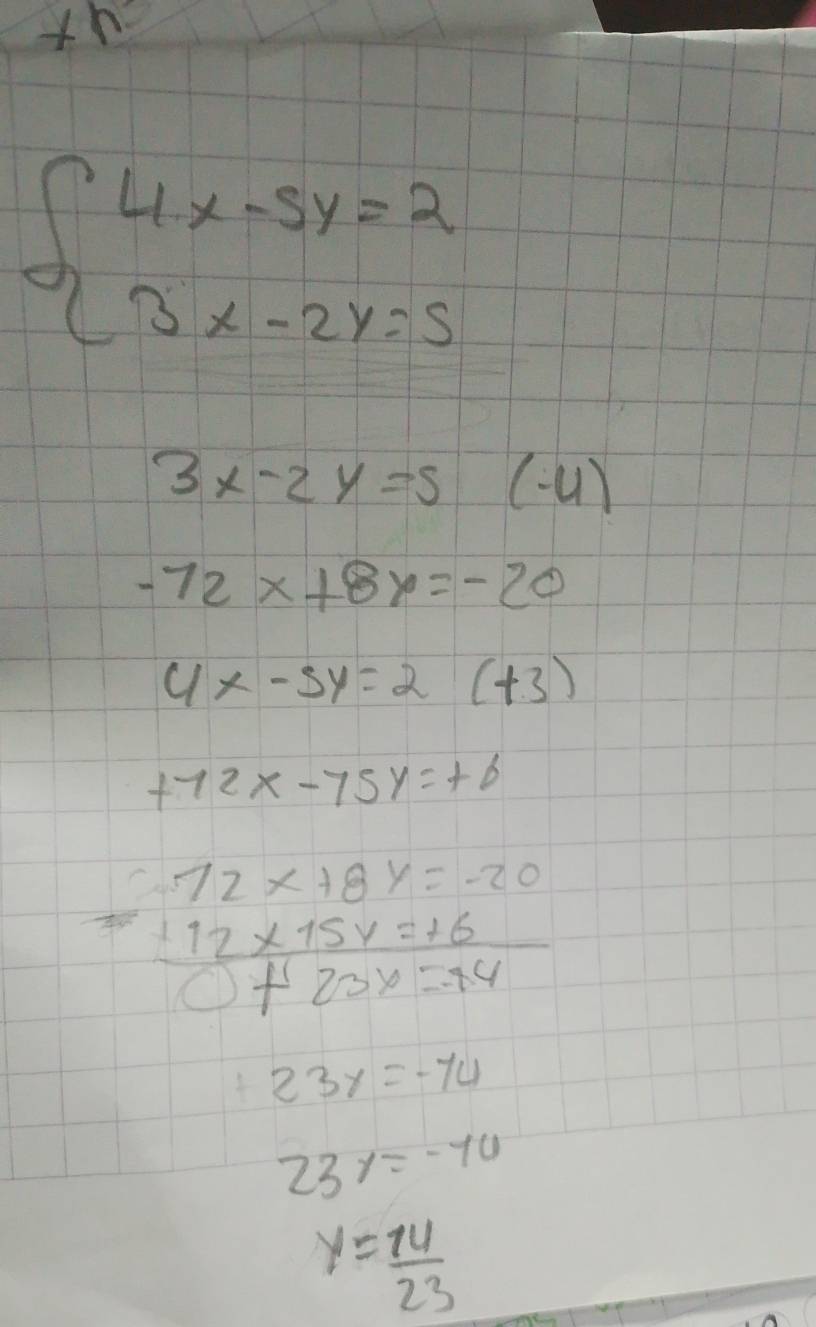 +n
4x - 5y = 2
3x - 2y = 5
3x - 2y = 5 (-4)
-12x + 8y = -20
4x - 5y = 2 (+3)
+12x - 15y = +6
-12x + 8y = -20
+12x 15y = +6
0 + 23y = -14
+ 23y = -14
23y = -14
y = 14/23